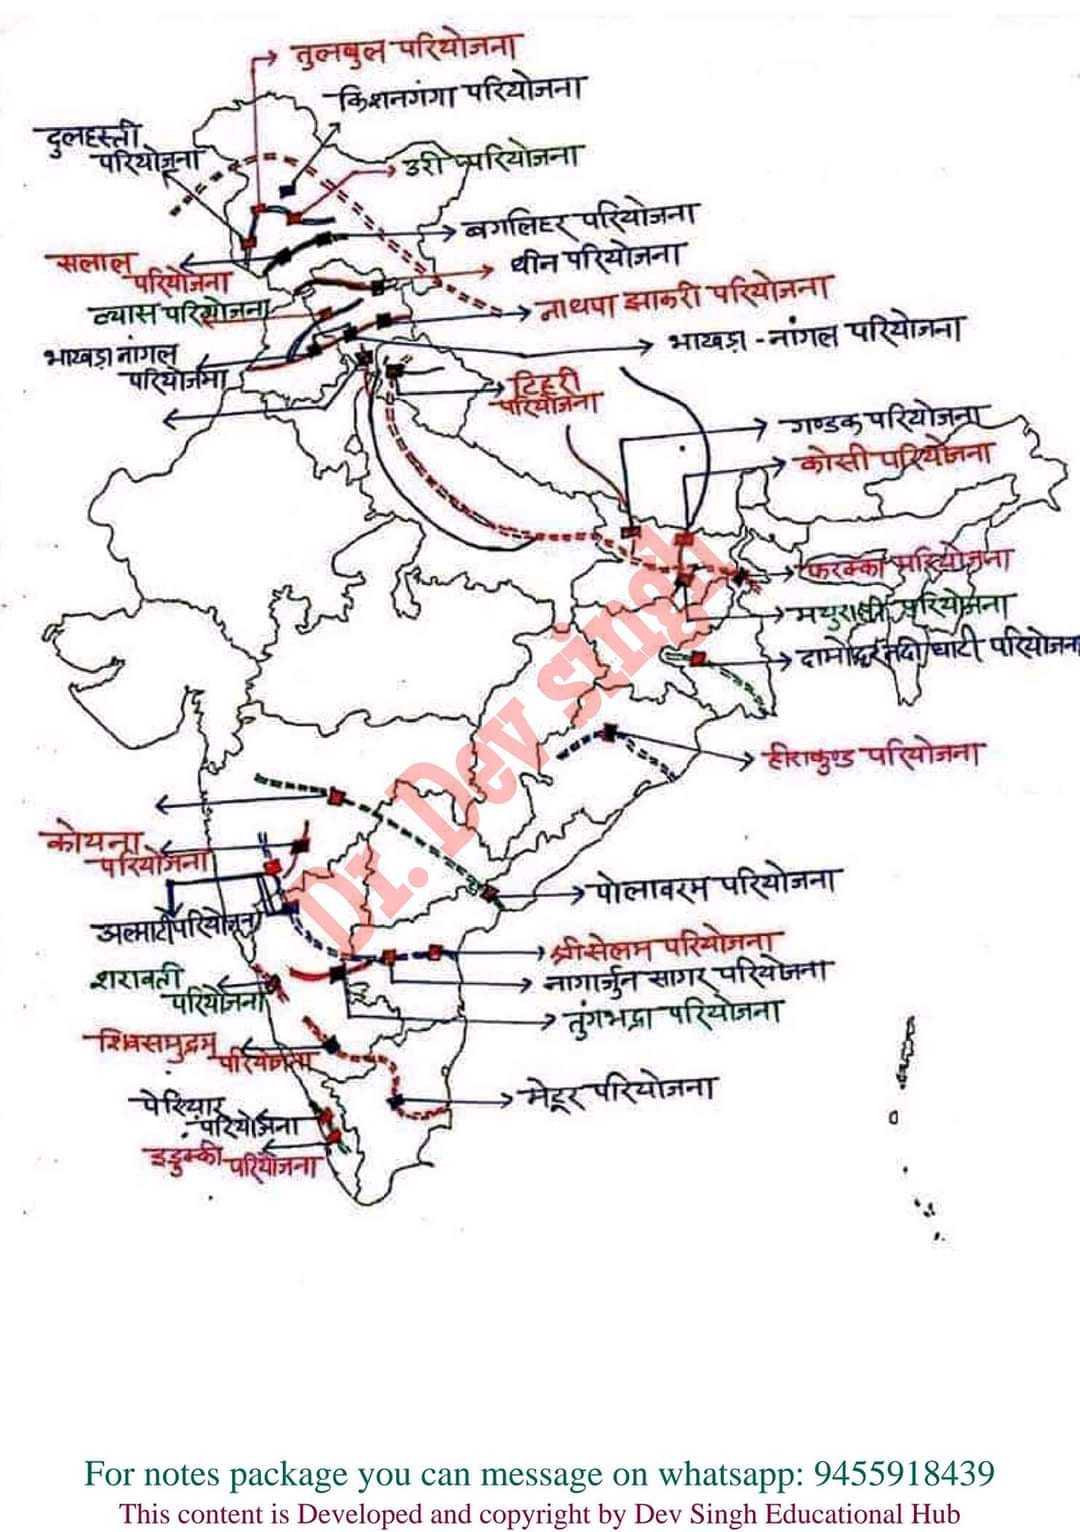 तुलबुल परियोजना
किशनगंगा परियोजना
दुलहस्ती
परियोजना
उरी परियोजना
बगलिहर परियोजना
सलाल
परियोजना
थीन परियोजना
व्यास परियोजना
नाथपा झाकरी परियोजना
भाखड़ा नांगल
परियोजना
भाखड़ा - नांगल परियोजना
टिहरी
परियोजना
गण्डक परियोजना
कोसी परियोजना
फरक्का परियोजना
मयुराक्षी परियोजना
दामोदर नदी घाटी परियोजना
हीराकुण्ड परियोजना
कोयना
परियोजना
पोलावरम परियोजना
अल्माटी परियोजना
श्रीसेलम परियोजना
शरावती
परियोजना
नागार्जुन सागर परियोजना
तुंगभद्रा परियोजना
शिवसमुद्रम
परियोजना
मेटूर परियोजना
पेरियार
परियोजना
इडुक्की परियोजना
Dr. Dev singh
For notes package you can message on whatsapp: 9455918439
This content is Developed and copyright by Dev Singh Educational Hub